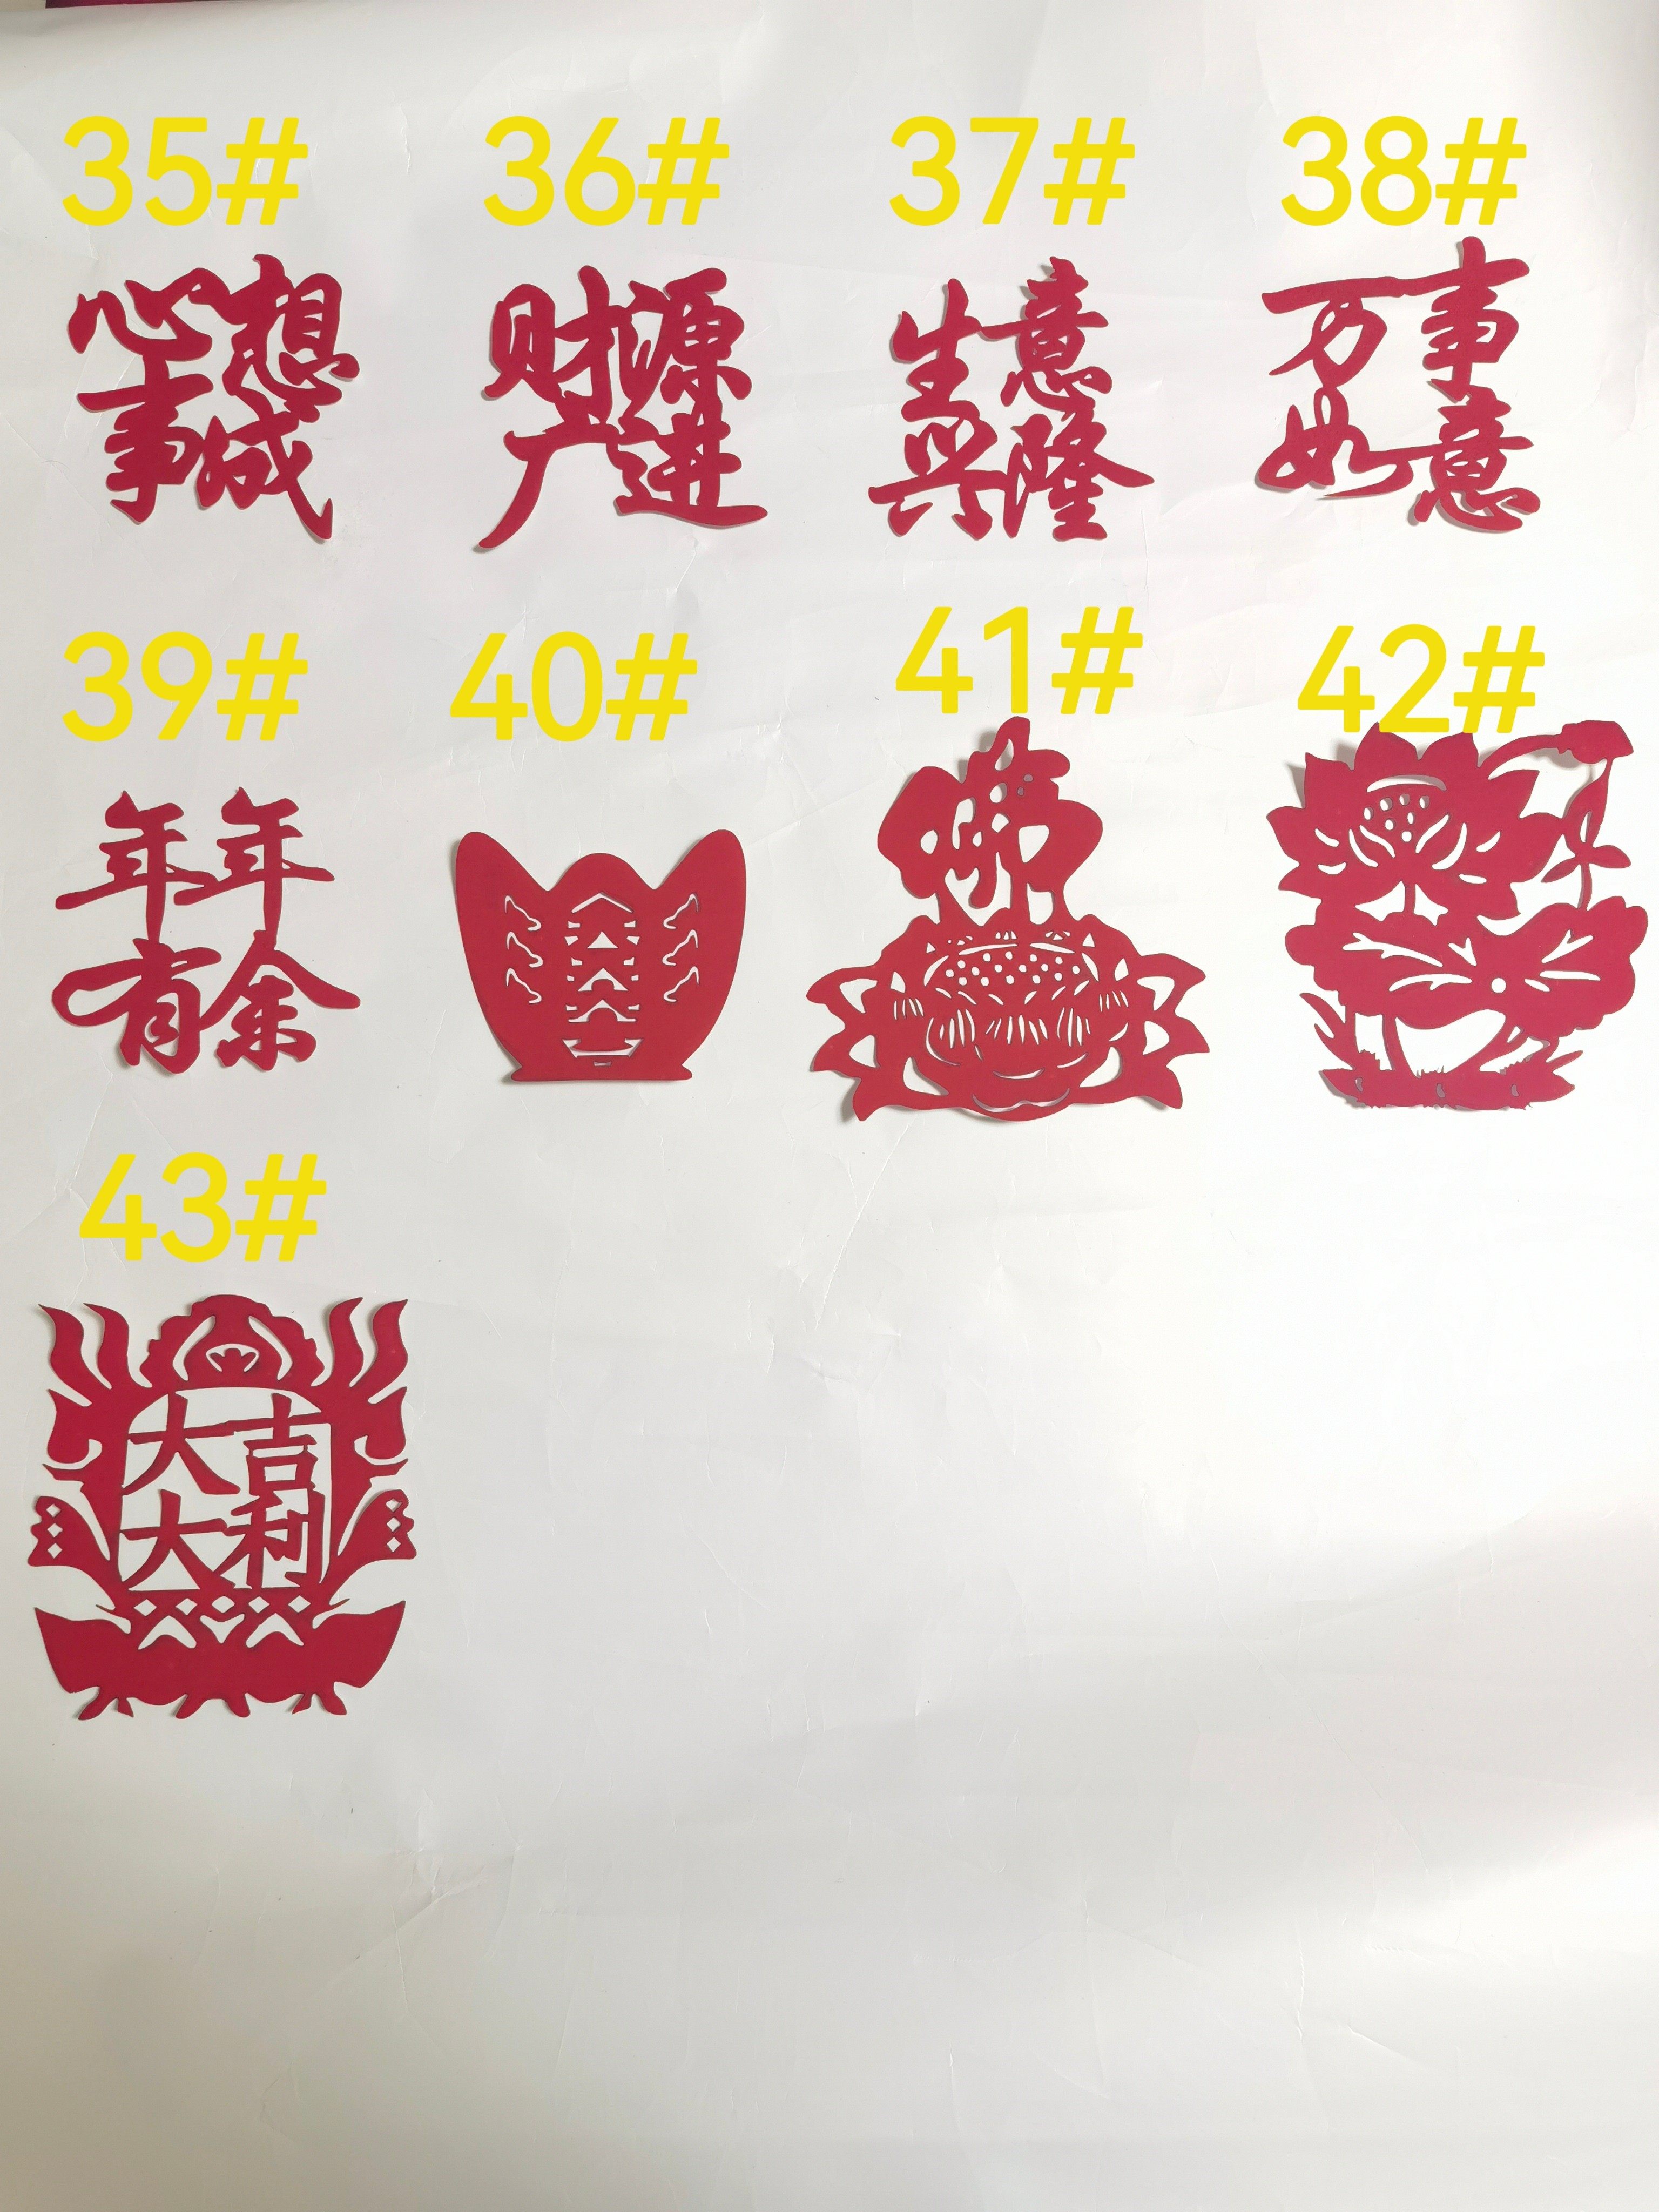 35# 36# 37# 38#
心想
事成
财源
广进
生意
兴隆
万事
如意
39# 40# 41# 42#
年年
有余
佛
43#
大吉
大利